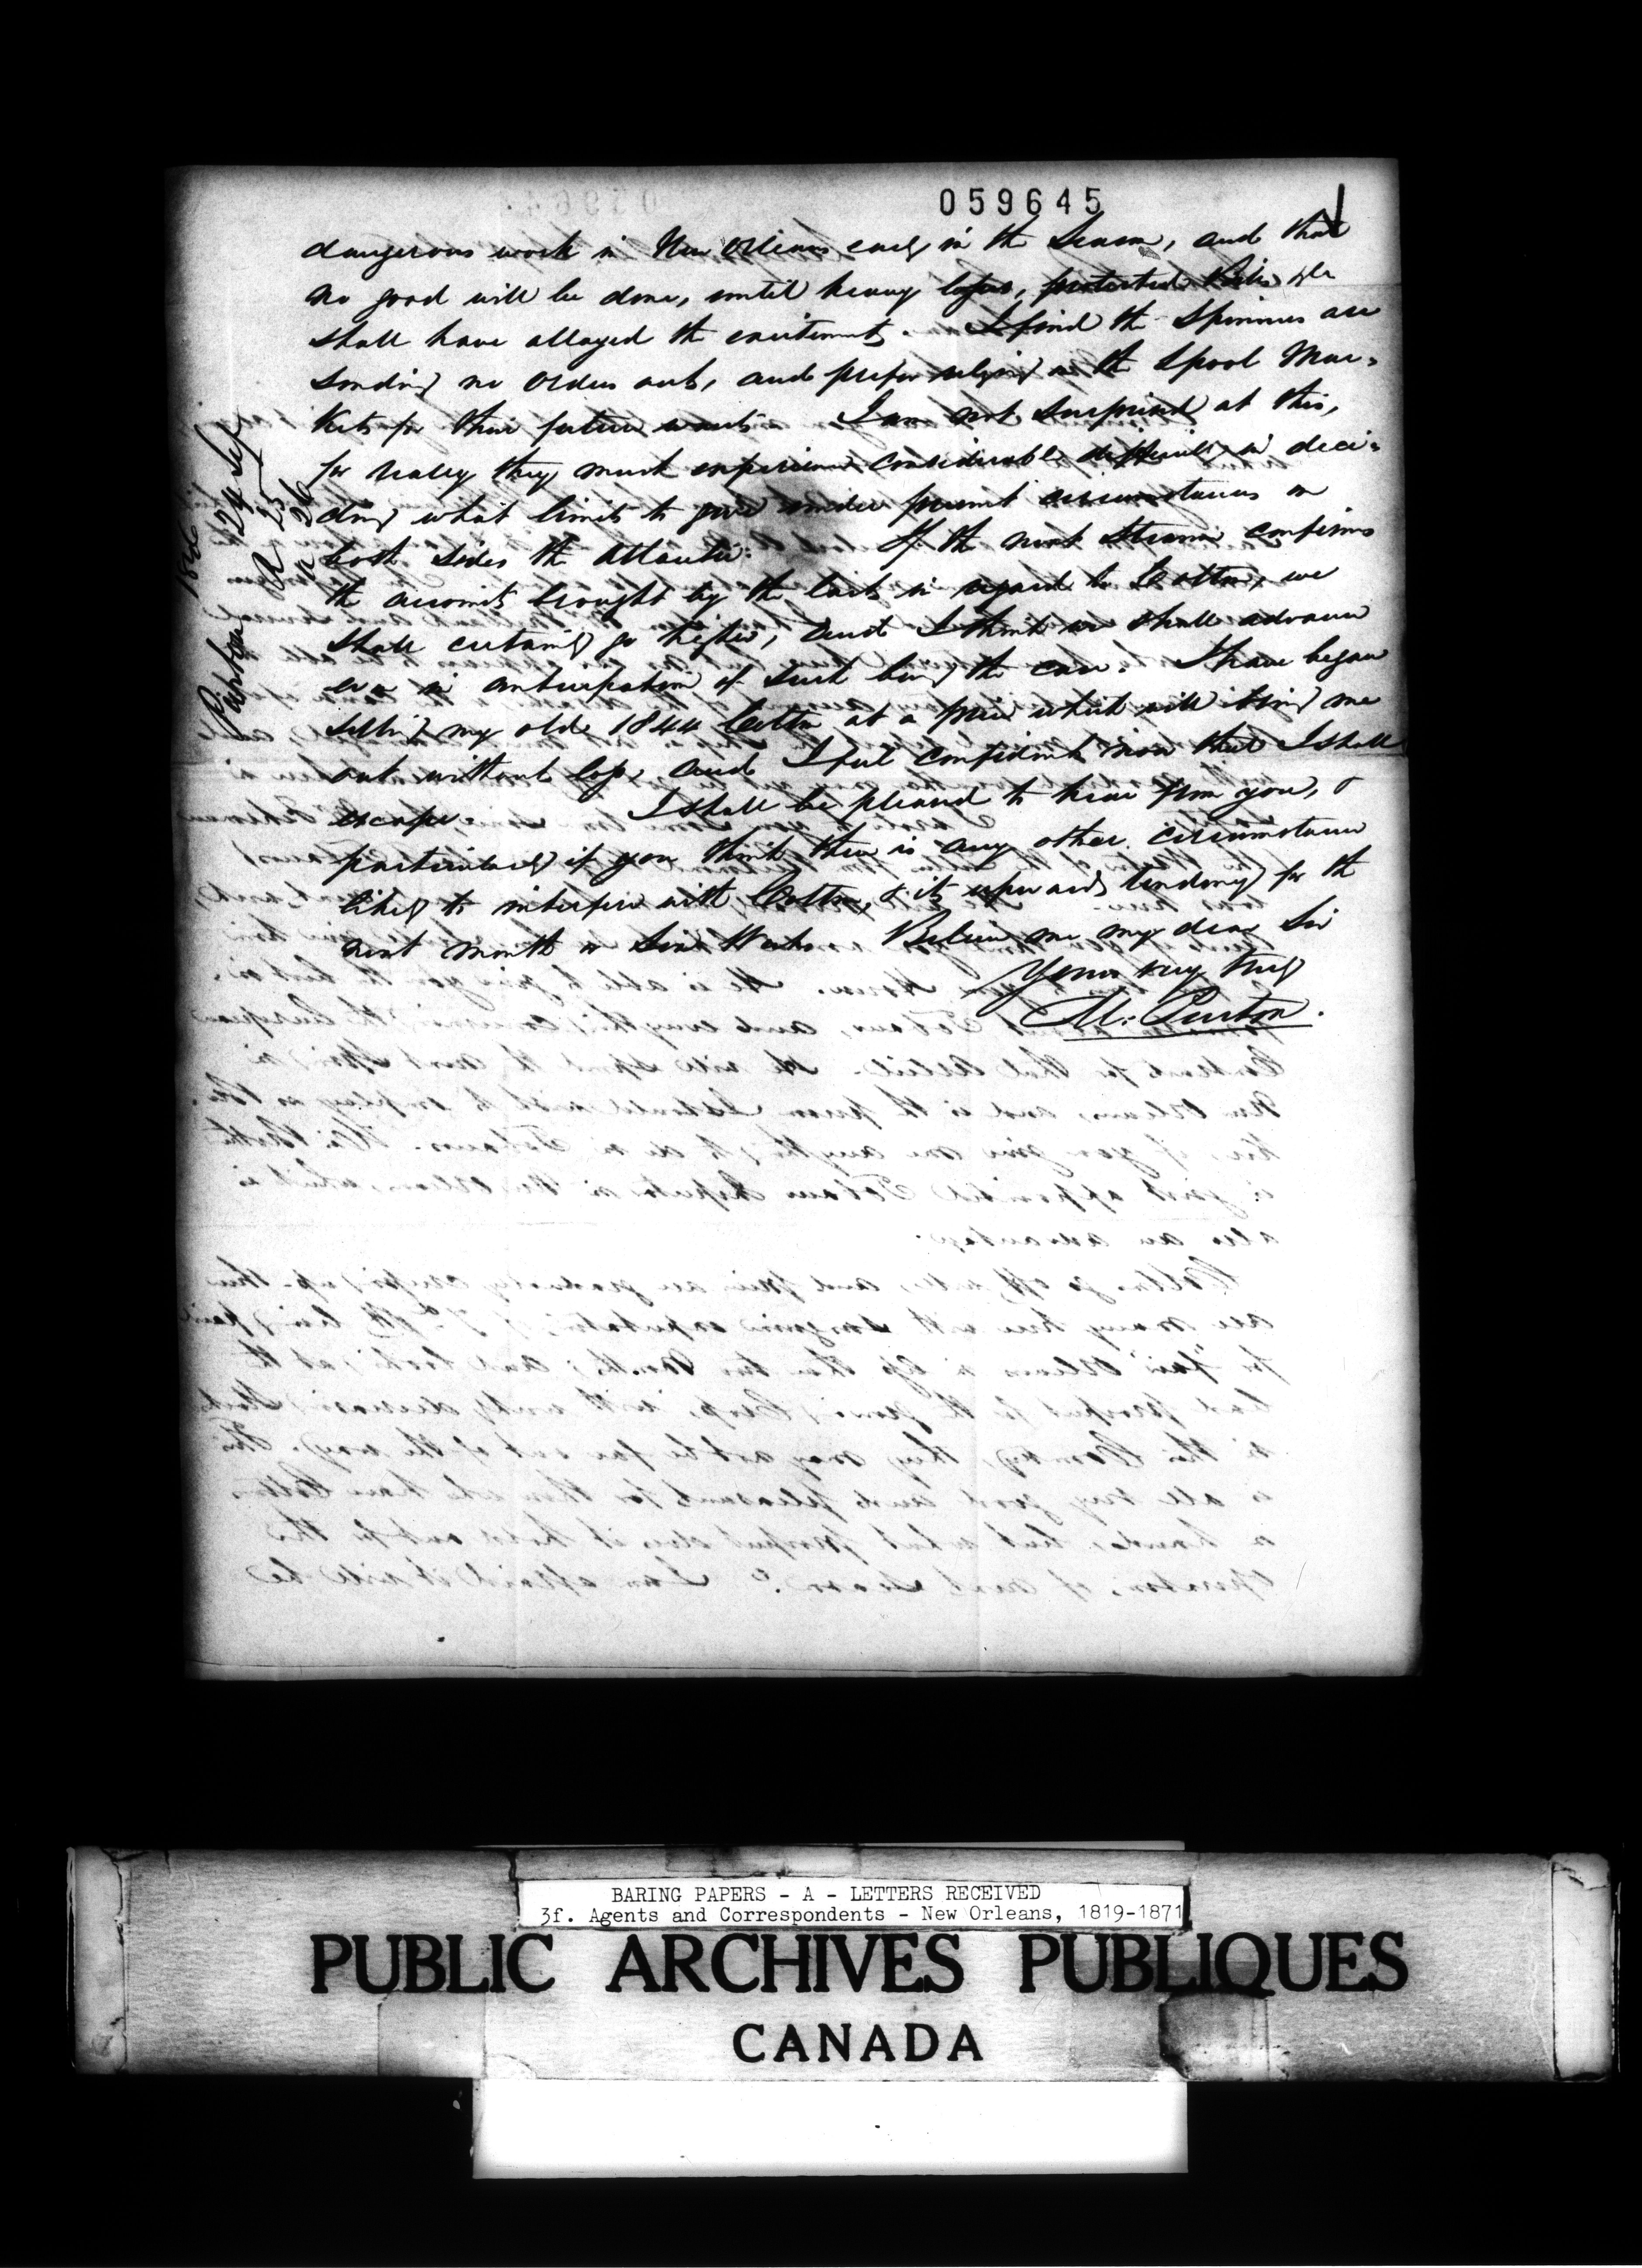 059645
dangerous work in New Orleans early in the Season, and that
no good will be done, until heavy losses, protested Bills &c
shall have allayed the excitement. I find the Spinners are
sending no Orders out, and prefer relying on the Lpool Mar-
kets for their future wants. I am not surprised at this,
for really they must experience considerable difficulty in deci-
ding what limits to give under present circumstances on
both sides the Atlantic. If the next Steamer confirms
the accounts brought by the last in regard to Cotton, we
shall certainly go higher, and I think we shall advance
even in anticipation of such being the case. I have began
selling my old 1844 Cotton at a price which will bring me
out without loss, and I feel confident now that I shall
escape. I shall be pleased to hear from you, &
particularly if you think there is any other circumstance
likely to interfere with Cotton, & its upward tendency for the
next month or Six Weeks. Believe me my dear Sir
Yours very truly
24 Sep
25
26
BARING PAPERS - A - LETTERS RECEIVED
3f. Agents and Correspondents - New Orleans, 1819-1871
PUBLIC ARCHIVES PUBLIQUES
CANADA